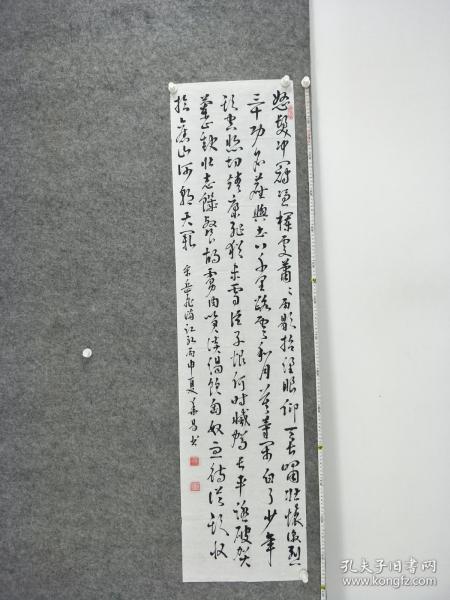 怒发冲冠凭栏处萧萧雨歇抬望眼仰天长啸壮怀激烈
三十功名尘与土八千里路云和月莫等闲白了少年
头空悲切靖康耻犹未雪臣子恨何时灭驾长车踏破贺
兰山缺壮志饥餐胡虏肉笑谈渴饮匈奴血待从头收
拾旧山河朝天阙
宋岳飞满江红丙申夏
孔夫子旧书网